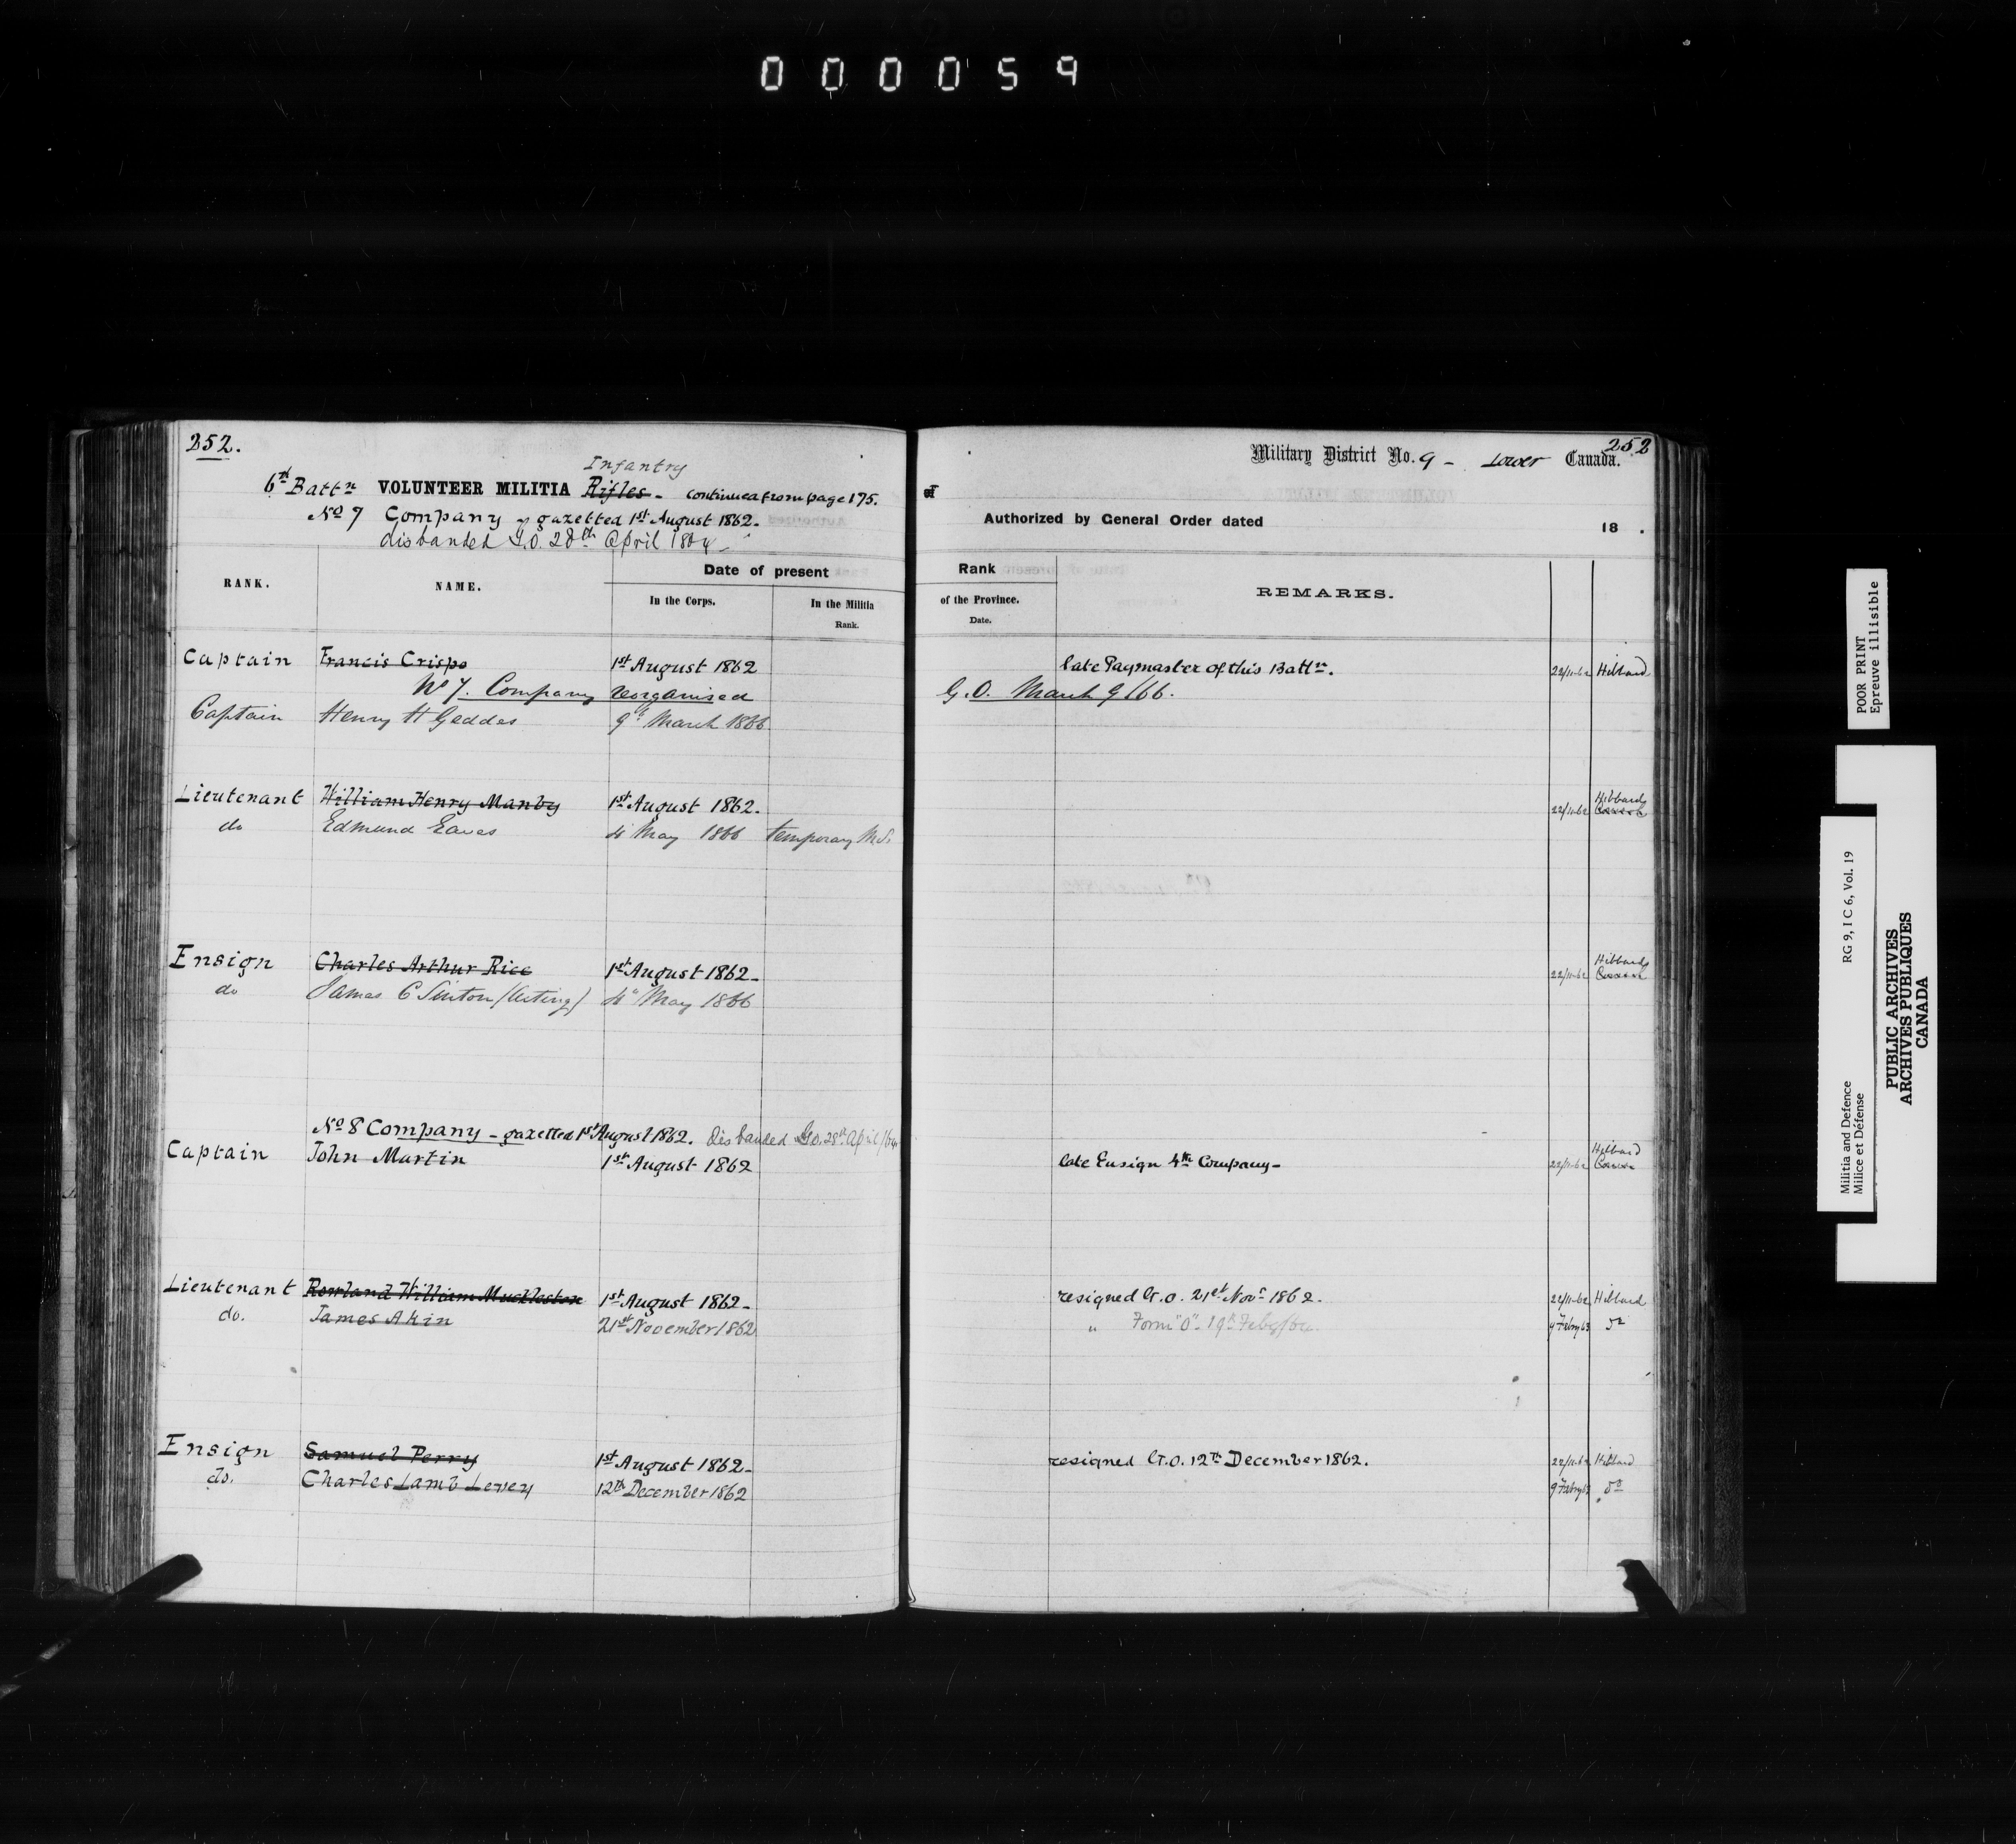 000059
252.
Infantry
6th Battn VOLUNTEER MILITIA Rifles - continued from page 175.
No 7 Company - gazetted 1st August 1862.
disbanded G.O. 28th April 1864
RANK.
NAME.
Date of present
In the Corps.
In the Militia
Rank.
Captain Francis Crispo 1st August 1862
No 7. Company reorganised
Captain Henry H Geddes 9th March 1866
Lieutenant William Henry Manby 1st August 1862.
do Edmund Eaves 4 May 1866 temporary
Ensign Charles Arthur Rice 1st August 1862-
do James C Sinton (Acting) 4" May 1866
No 8 Company - gazetted 1st August 1862. disbanded G.O. 28th April/64
Captain John Martin 1st August 1862
Lieutenant Rowland William Muckleston 1st August 1862-
do. James Akin 21st November 1862
Ensign Samuel Perry 1st August 1862-
do. Charles Lamb Levey 12th December 1862
252
Military District No. 9 - Lower Canada.
of
Authorized by General Order dated 18 .
Rank
of the Province.
Date.
REMARKS.
late Paymaster of this Battn. 22/11-62 Hibbard
G.O. March 9/66.
22/11-62 Hibbard
22/11-62 Hibbard
late Ensign 4th Company- 22/11-62 Hibbard
resigned G.O. 21st Novr 1862. 22/11-62 Hibbard
" Form "O" - 19th Feby/64. 9 Febry 63 do
resigned G.O. 12th December 1862. 22/11-62 Hibbard
9 Febry 63 do
POOR PRINT
Epreuve illisible
Militia and Defence RG 9, I C 6, Vol. 19
Milice et Défense
PUBLIC ARCHIVES
ARCHIVES PUBLIQUES
CANADA